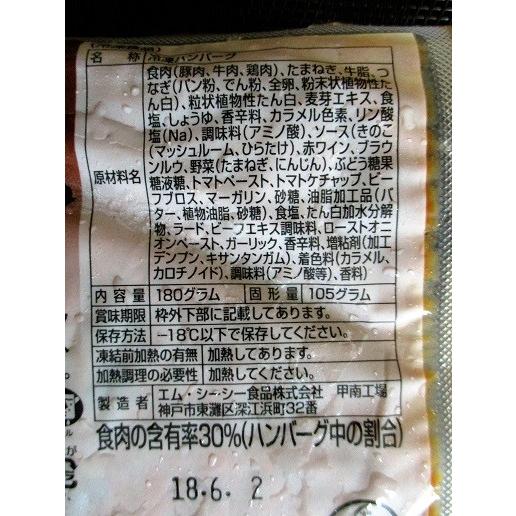 名 称 冷凍ハンバーグ
食肉(豚肉、牛肉、鶏肉)、たまねぎ、牛脂、つ
なぎ(パン粉、でん粉、全卵、粉末状植物性た
ん白)、粒状植物性たん白、麦芽エキス、食
塩、しょうゆ、香辛料、カラメル色素、リン酸
塩(Na)、調味料(アミノ酸)、ソース(きのこ
(マッシュルーム、ひらたけ)、赤ワイン、ブラウ
ンルウ、野菜(たまねぎ、にんじん)、ぶどう糖果
原材料名 糖液糖、トマトペースト、トマトケチャップ、ビー
フブロス、マーガリン、砂糖、油脂加工品(バ
ター、植物油脂、砂糖)、食塩、たん白加水分解
物、ラード、ビーフエキス調味料、ローストオニ
オンペースト、ガーリック、香辛料、増粘剤(加工
デンプン、キサンタンガム)、着色料(カラメル、
カロチノイド)、調味料(アミノ酸等)、香料)
内 容 量 180グラム 固 形 量 105グラム
賞味期限 枠外下部に記載してあります。
保存方法 −18℃以下で保存してください。
凍結前加熱の有無 加熱してあります。
加熱調理の必要性 加熱してください。
製 造 者 エム・シーシー食品株式会社 甲南工場
神戸市東灘区深江浜町32番
食肉の含有率30%(ハンバーグ中の割合)
18.6. 2